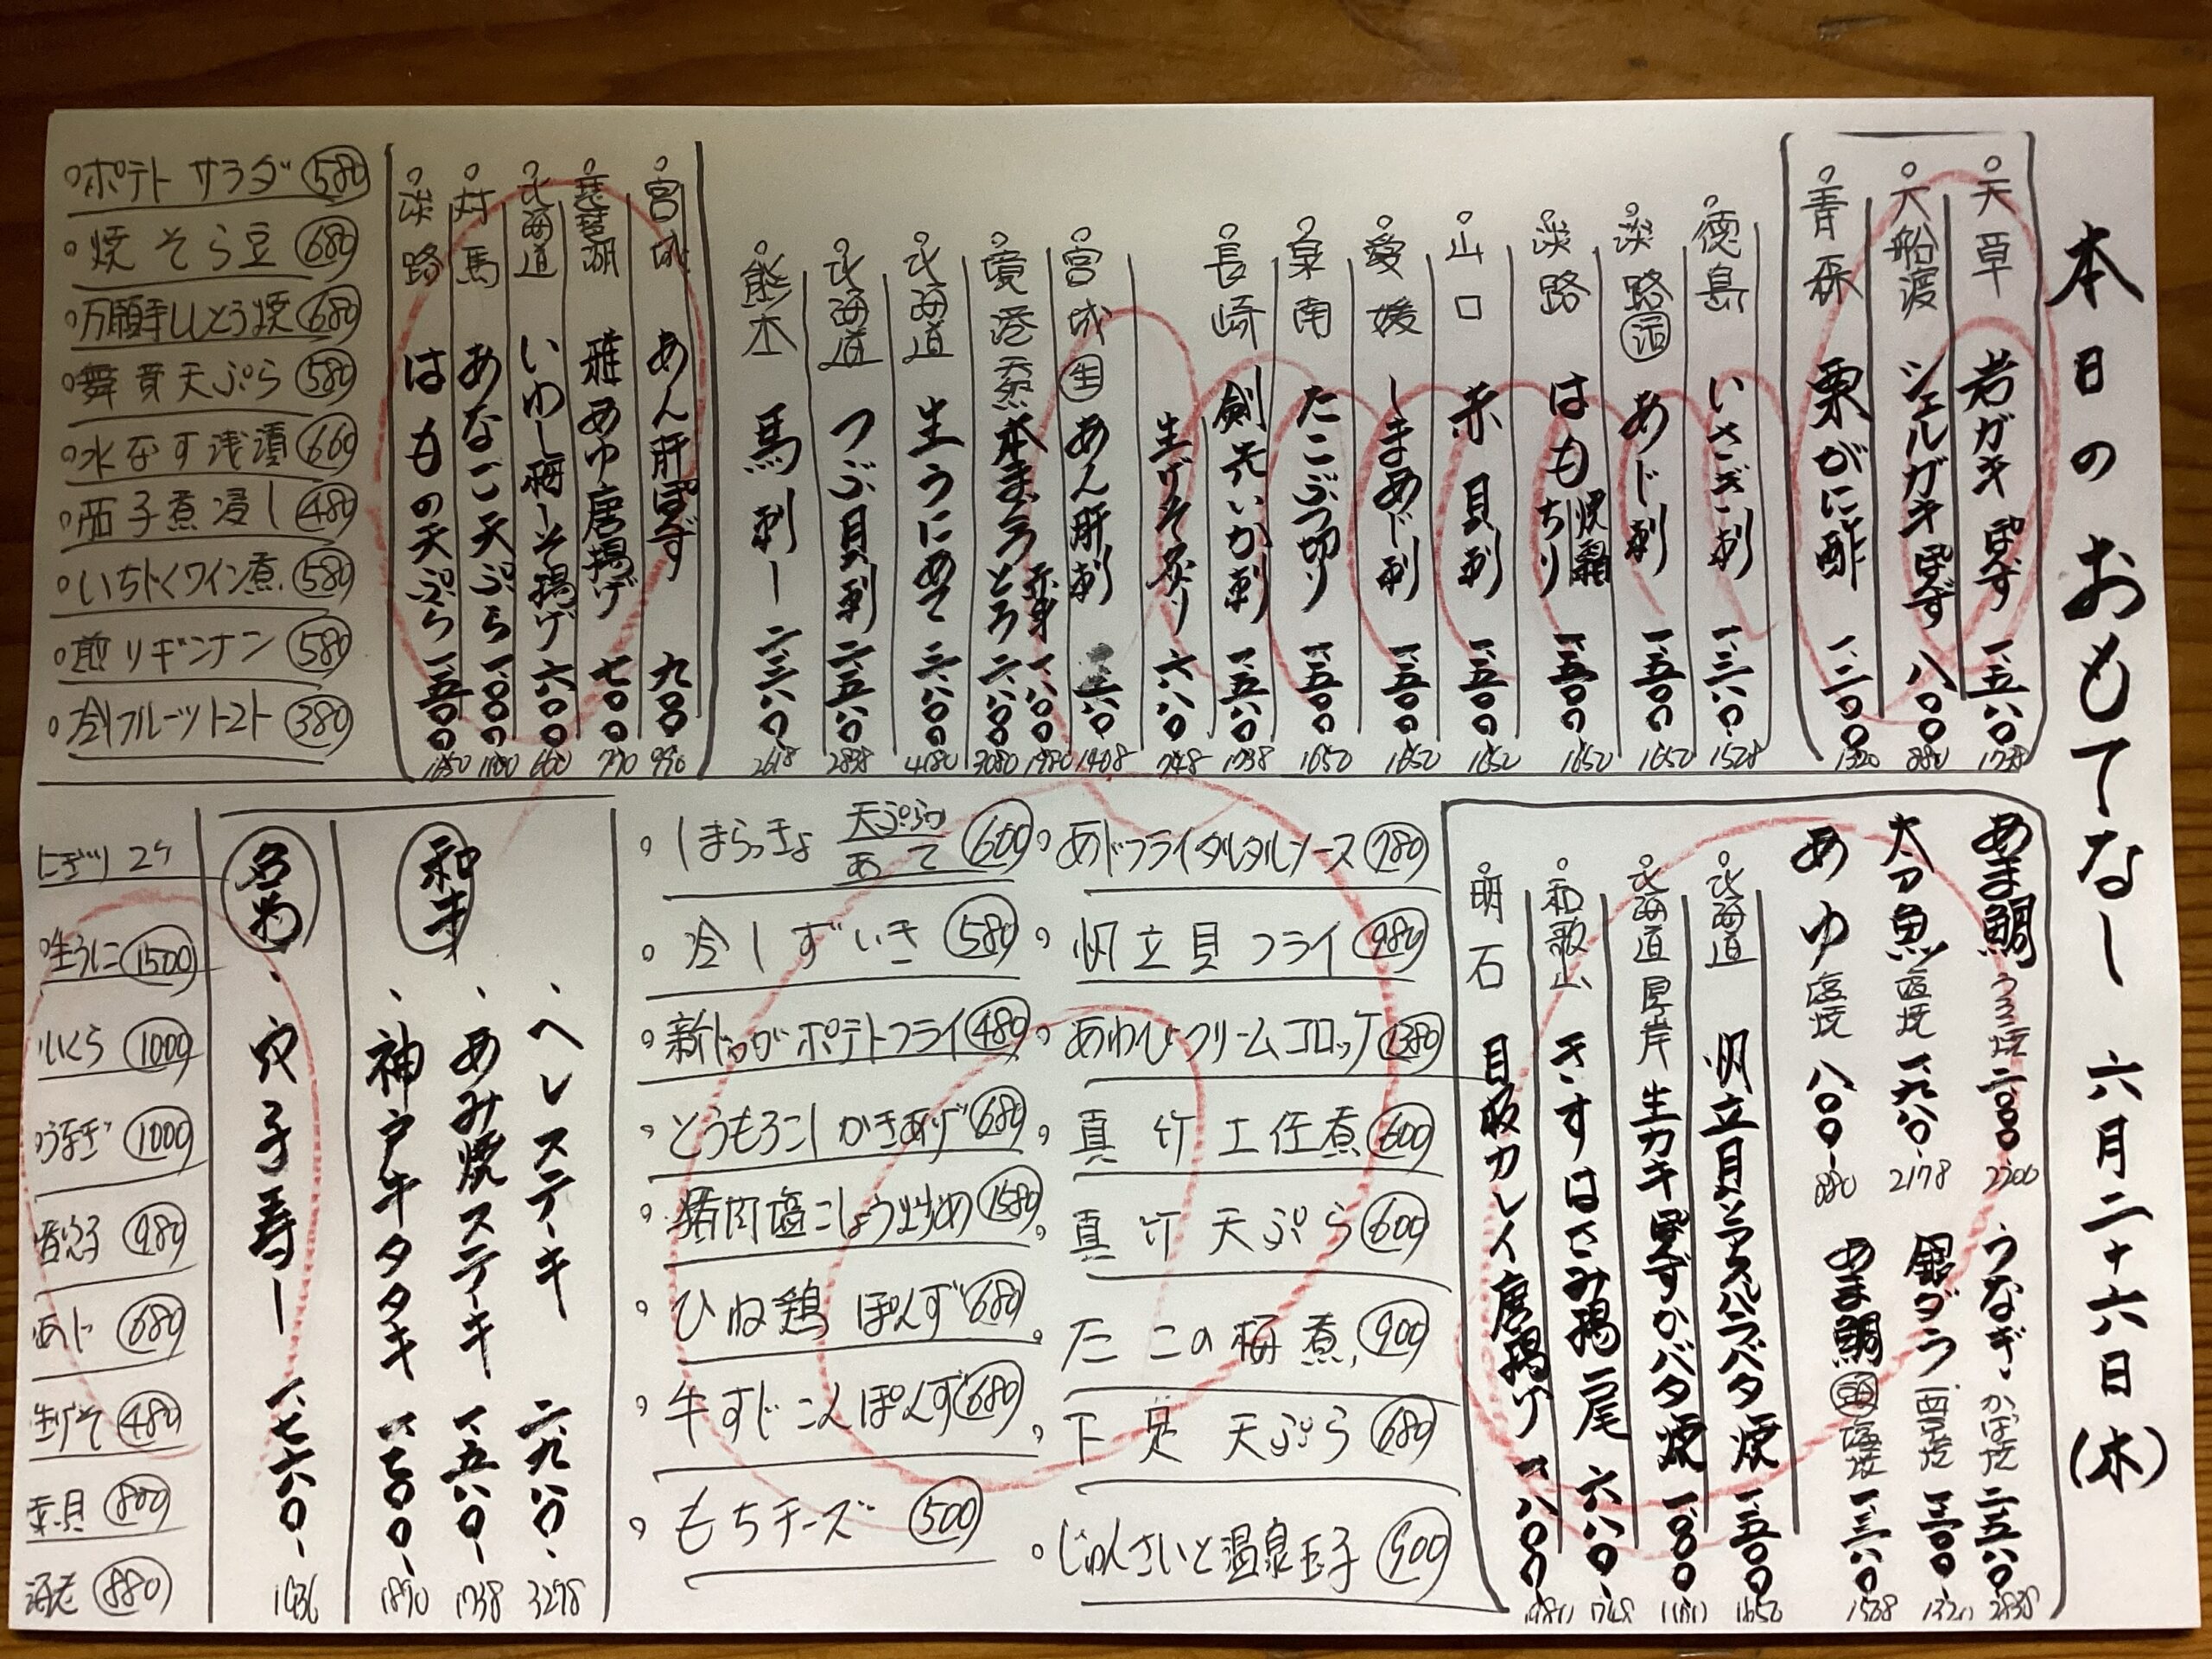 本日のおもてなし 六月二十六日(木)
天草 岩ガキぽず 一、五八〇 1738
大船渡 シェルガキぽず 八〇〇 880
青森 栗がに酢 一、二〇〇 1320
徳島 いさぎ刺 一、三八〇 1528
淡路 活 あじ刺 一、五〇〇 1650
淡路 はも 焼霜 ちり 一、五〇〇 1650
山口 赤貝刺 一、五〇〇 1650
愛媛 しまあじ刺 一、五〇〇 1650
泉南 たこぶつ切り 一、五〇〇 1650
長崎 剣先いか刺 一、五八〇 1738
生げそ炙り 六八〇 748
宮城 生 あん肝刺 1408
境港 天然 本まぐろ 赤身 一、八〇〇 1980
とろ 二、八〇〇 3080
北海道 生うにあて 三、八〇〇 4180
北海道 つぶ貝刺 二、五八〇 2838
熊本 馬刺し 二、三八〇 2618
宮城 あん肝ぽず 九〇〇 990
琵琶湖 稚あゆ唐揚げ 七〇〇 770
北海道 いわし梅しそ揚げ 六〇〇 660
対馬 あなご天ぷら 一、〇〇〇 1100
淡路 はもの天ぷら 一、五〇〇 1650
ポテトサラダ 580
焼そら豆 680
万願寺ししとう焼 680
舞茸天ぷら 580
水なす浅漬 660
茄子煮浸し 480
いちじくワイン煮 580
煎りギンナン 580
冷フルーツトマト 380
あま鯛 うろこ焼 二、〇〇〇 2200
太刀魚 塩焼 一、九八〇 2178
あゆ 塩焼 八〇〇 880
うなぎ かば焼 二、五八〇 2838
銀ダラ 西京焼 一、二〇〇 1320
あま鯛 頭 塩焼 一、三八〇 1528
北海道 帆立貝 バタ焼 一、五〇〇 1650
北海道厚岸 生カキ ぽずかバタ焼 一、〇〇〇 1100
和歌山 きすはさみ揚 二尾 六八〇 748
明石 目板カレイ唐揚げ 一、八〇〇 1980
あじフライタルタルソース 780
帆立貝フライ 980
あわびクリームコロッケ 1380
真竹土佐煮 600
真竹天ぷら 600
たこの梅煮 900
下足天ぷら 680
じゅんさいと温泉玉子 900
しまらっきょ 天ぷらか あて 600
冷しずいき 580
新じゃがポテトフライ 480
とうもろこしかきあげ 680
猪肉塩こしょう炒め 1580
ひね鶏ぽんず 680
牛すじこんぽんず 680
もちチーズ 500
和牛
ヘレステーキ 二、九八〇 3278
あみ焼ステーキ 一、五八〇 1738
神戸牛タタキ 一、七〇〇 1870
名物
穴子寿し 一、七六〇 1936
にぎり 2ケ
生うに 1500
いくら 1000
うなぎ 1000
980
あじ 680
生げそ 480
赤貝 800
海老 880